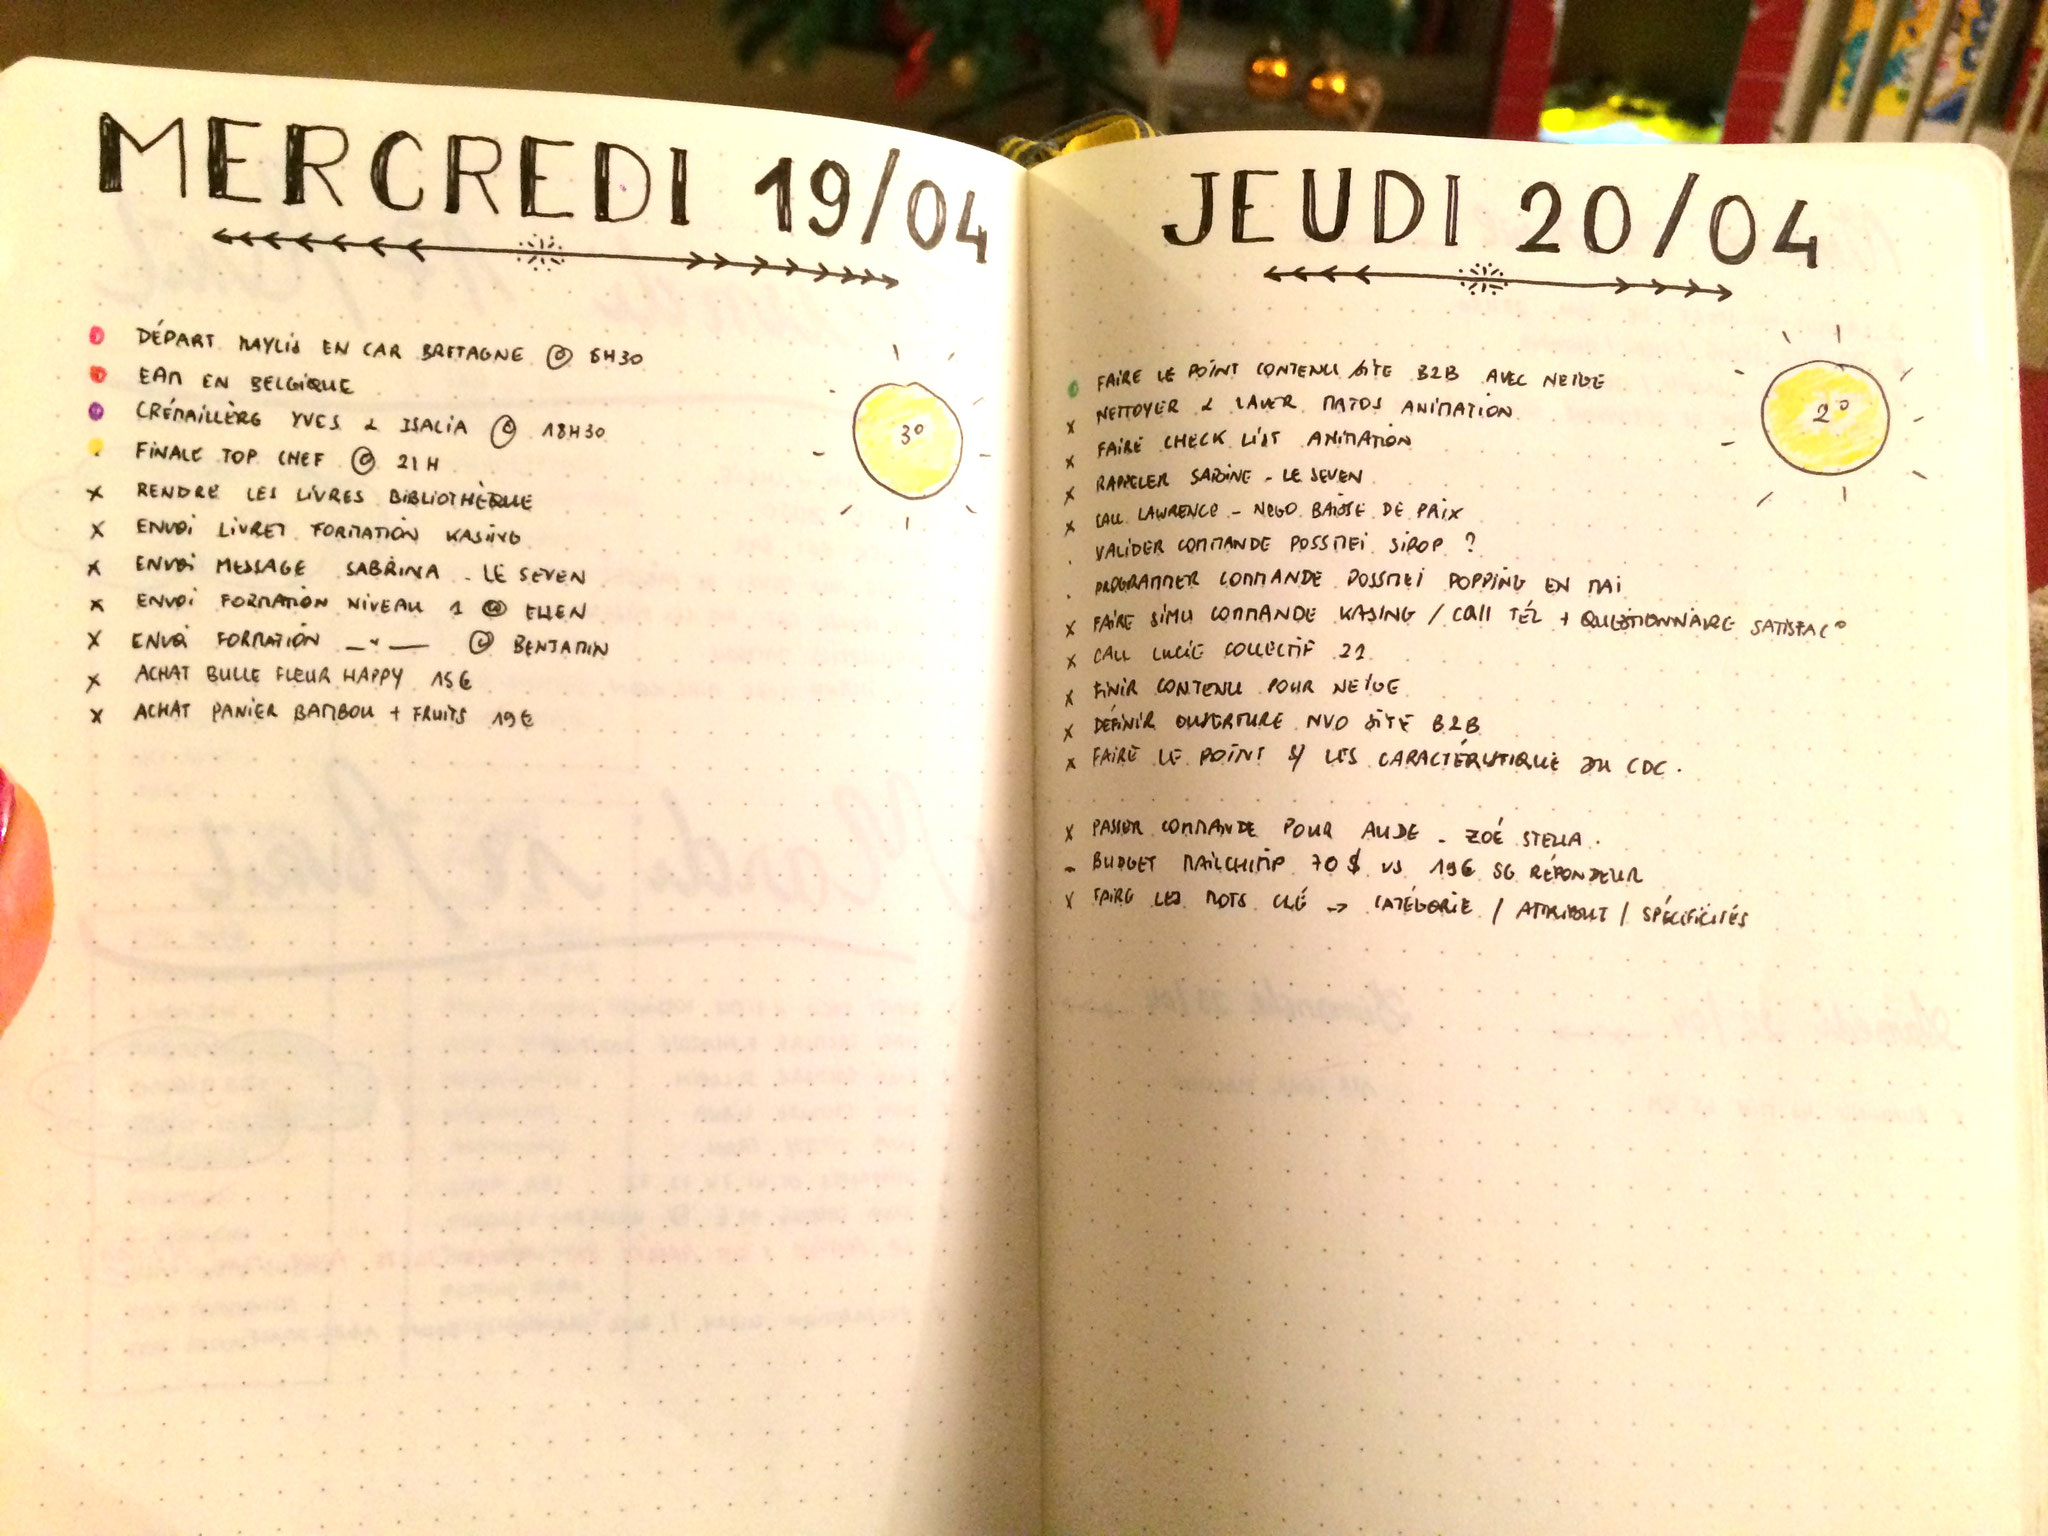 MERCREDI 19/04
DÉPART MAYLIS EN CAR BRETAGNE @ 6H30
EAM EN BELGIQUE
CRÉMAILLÈRE YVES & ISALIA @ 18H30
FINALE TOP CHEF @ 21H
3°
x RENDRE LES LIVRES BIBLIOTHÈQUE
x ENVOI LIVRET FORMATION KASING
x ENVOI MESSAGE SABRINA - LE SEVEN
x ENVOI FORMATION NIVEAU 1 @ ELLEN
x ENVOI FORMATION _"_ @ BENJAMIN
x ACHAT BULLE FLEUR HAPPY 15€
x ACHAT PANIER BAMBOU + FRUITS 19€
JEUDI 20/04
2°
FAIRE LE POINT CONTENU SITE B2B AVEC NEIGE
x NETTOYER & LAVER MATOS ANIMATION
x FAIRE CHECK LIST ANIMATION
x RAPPELER SABINE - LE SEVEN
x CALL LAWRENCE - NEGO BAISSE DE PRIX
. VALIDER COMMANDE POSSMEI SIROP ?
. PROGRAMMER COMMANDE POSSMEI POPPING EN MAI
x FAIRE SIMU COMMANDE KASING / CALL TÉL + QUESTIONNAIRE SATISFAC°
x CALL LUCIE COLLECTIF 21
x FINIR CONTENU POUR NEIGE
x DÉFINIR OUVERTURE NVO SITE B2B
x FAIRE LE POINT S/ LES CARACTÉRISTIQUE DU CDC.
x PASSER COMMANDE POUR AUDE - ZOÉ STELLA.
- BUDGET MAILCHIMP 70$ VS 19€ SG RÉPONDEUR
x FAIRE LES MOTS CLÉ -> CATÉGORIE / ATTRIBUT / SPÉCIFICITÉS